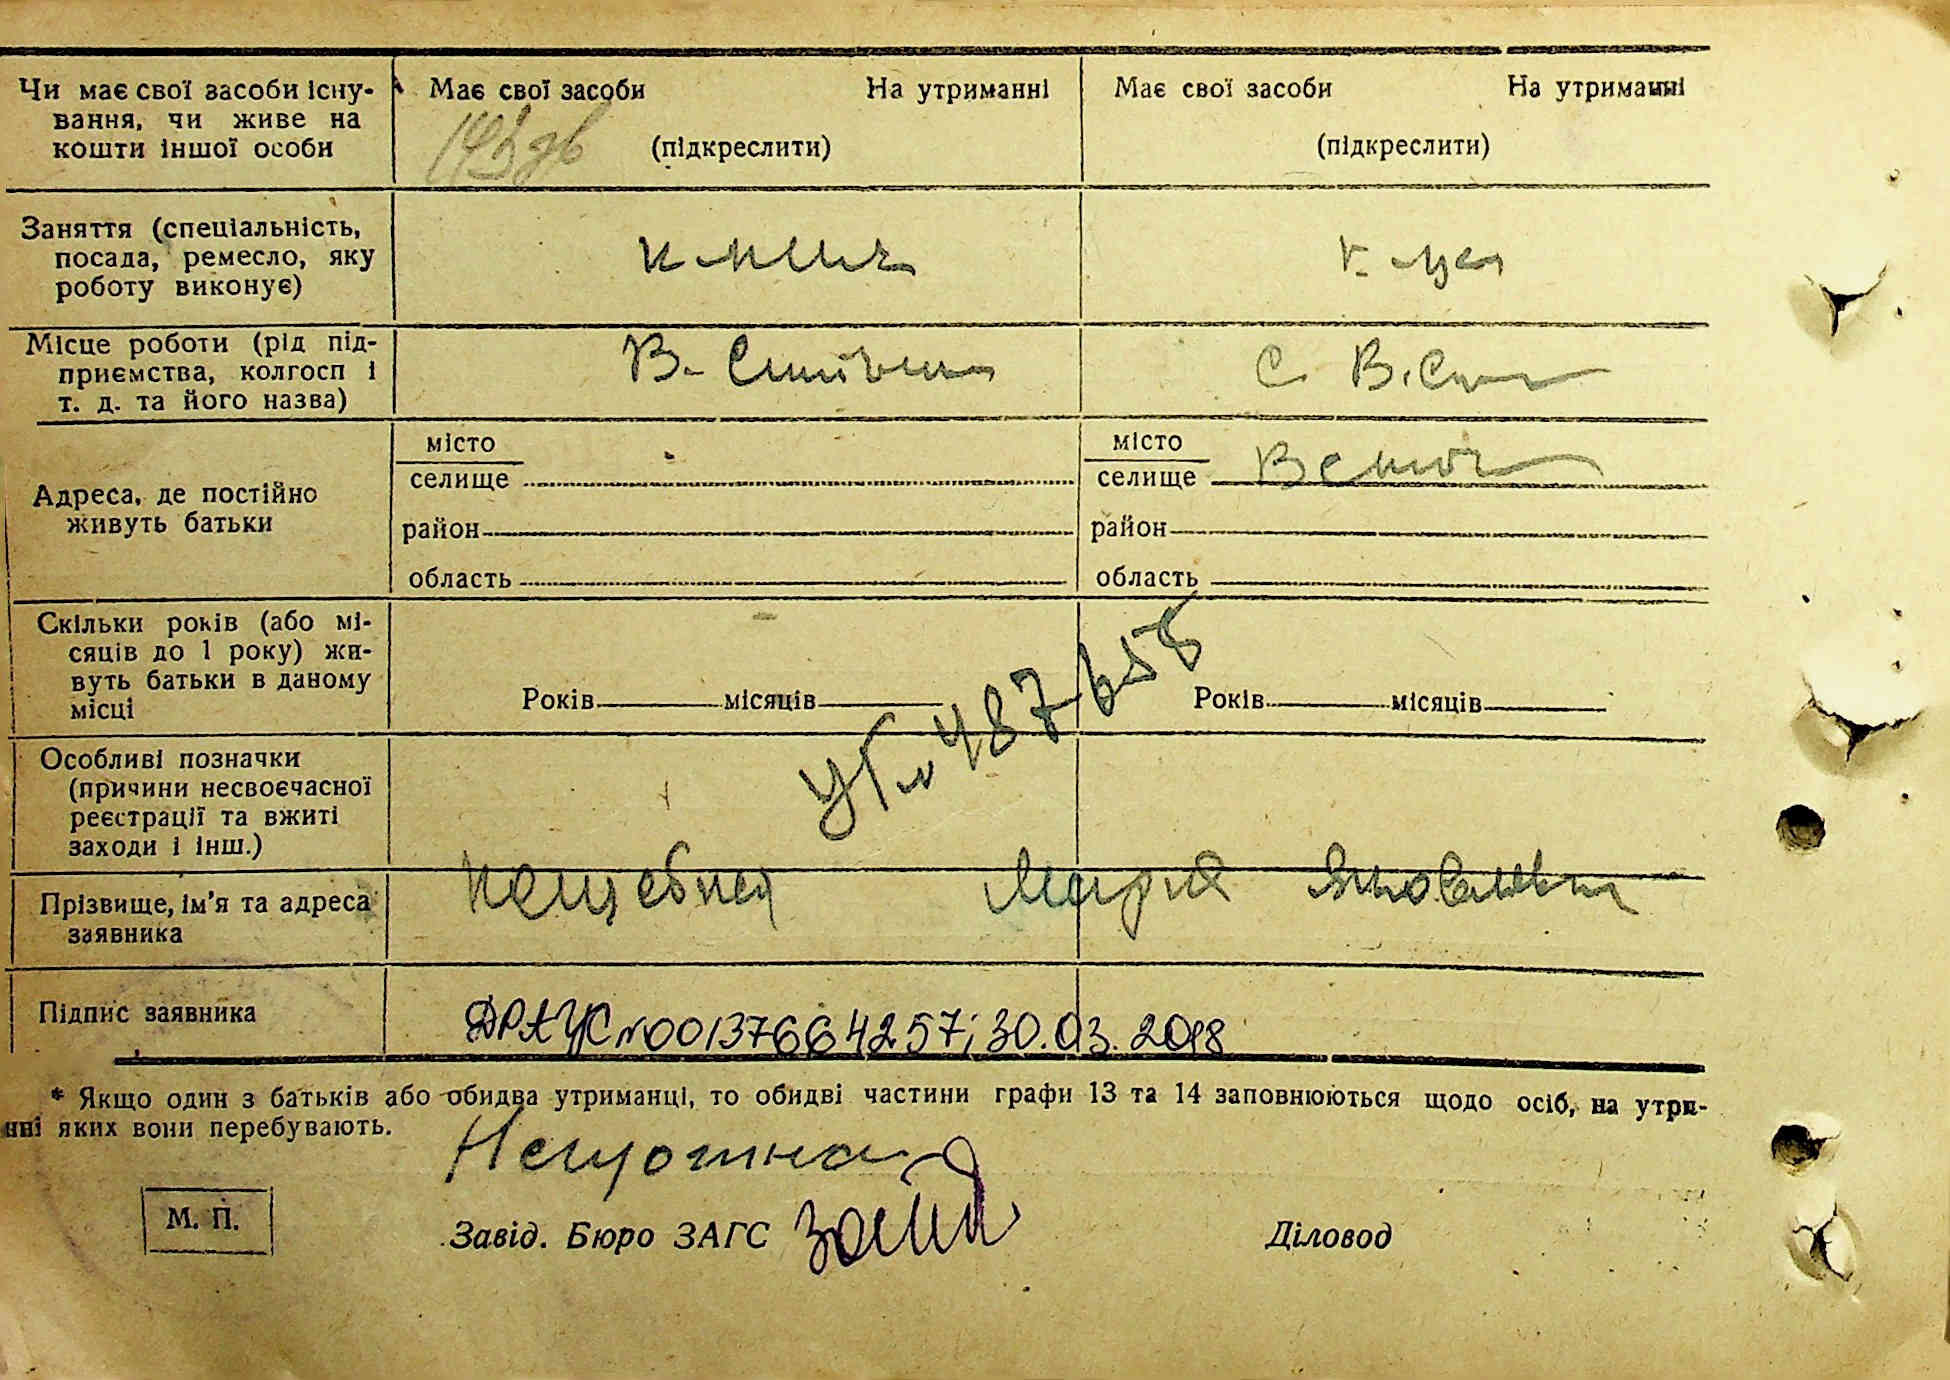 Чи має свої засоби існу-
вання, чи живе на
кошти іншої особи
Має свої засоби На утриманні
(підкреслити)
Має свої засоби На утриманні
(підкреслити)
Заняття (спеціальність,
посада, ремесло, яку
роботу виконує)
Місце роботи (рід під-
приємства, колгосп і
т. д. та його назва)
В.
С. В.
Адреса, де постійно
живуть батьки
місто
селище
район
область
місто
селище
район
область
Скільки років (або мі-
сяців до 1 року) жи-
вуть батьки в даному
місці
Років місяців
Років місяців
Особливі позначки
(причини несвоєчасної
реєстрації та вжиті
заходи і інш.)
Прізвище, ім'я та адреса
заявника
Мария Яковлевна
Підпис заявника
ДРАЦС №00137664257; 30.03.2018
* Якщо один з батьків або обидва утриманці, то обидві частини графи 13 та 14 заповнюються щодо осіб, на утри-
нні яких вони перебувають.
М. П.
Завід. Бюро ЗАГС
Діловод